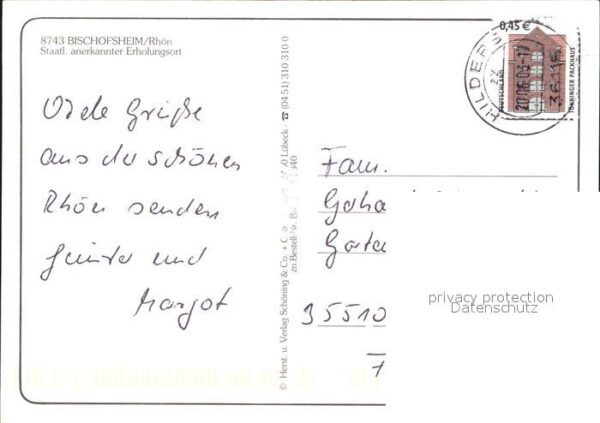 8743 BISCHOFSHEIM/Rhön
Staatl. anerkannter Erholungsort
Viele Grüße
aus der schönen
Rhön senden
Günter und
Margot
© Herst. u. Verlag Schöning & Co. + Lübeck ☎ (04 51) 310 310 0
zn Bestell-Nr.
0,45 €
DEUTSCHLAND
TÖNNINGER PACKHAUS
HILDERS
20.06.03-17
36115
Fam.
35510
privacy protection
Datenschutz